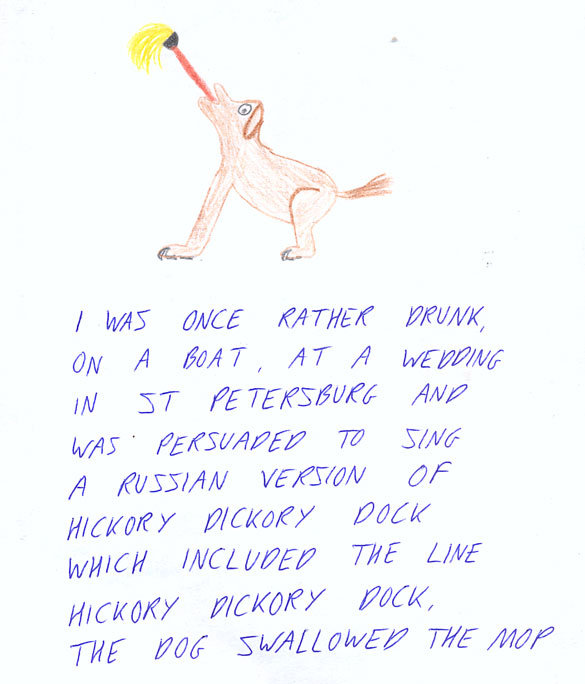 I WAS ONCE RATHER DRUNK,
ON A BOAT, AT A WEDDING
IN ST PETERSBURG AND
WAS PERSUADED TO SING
A RUSSIAN VERSION OF
HICKORY DICKORY DOCK
WHICH INCLUDED THE LINE
HICKORY DICKORY DOCK,
THE DOG SWALLOWED THE MOP